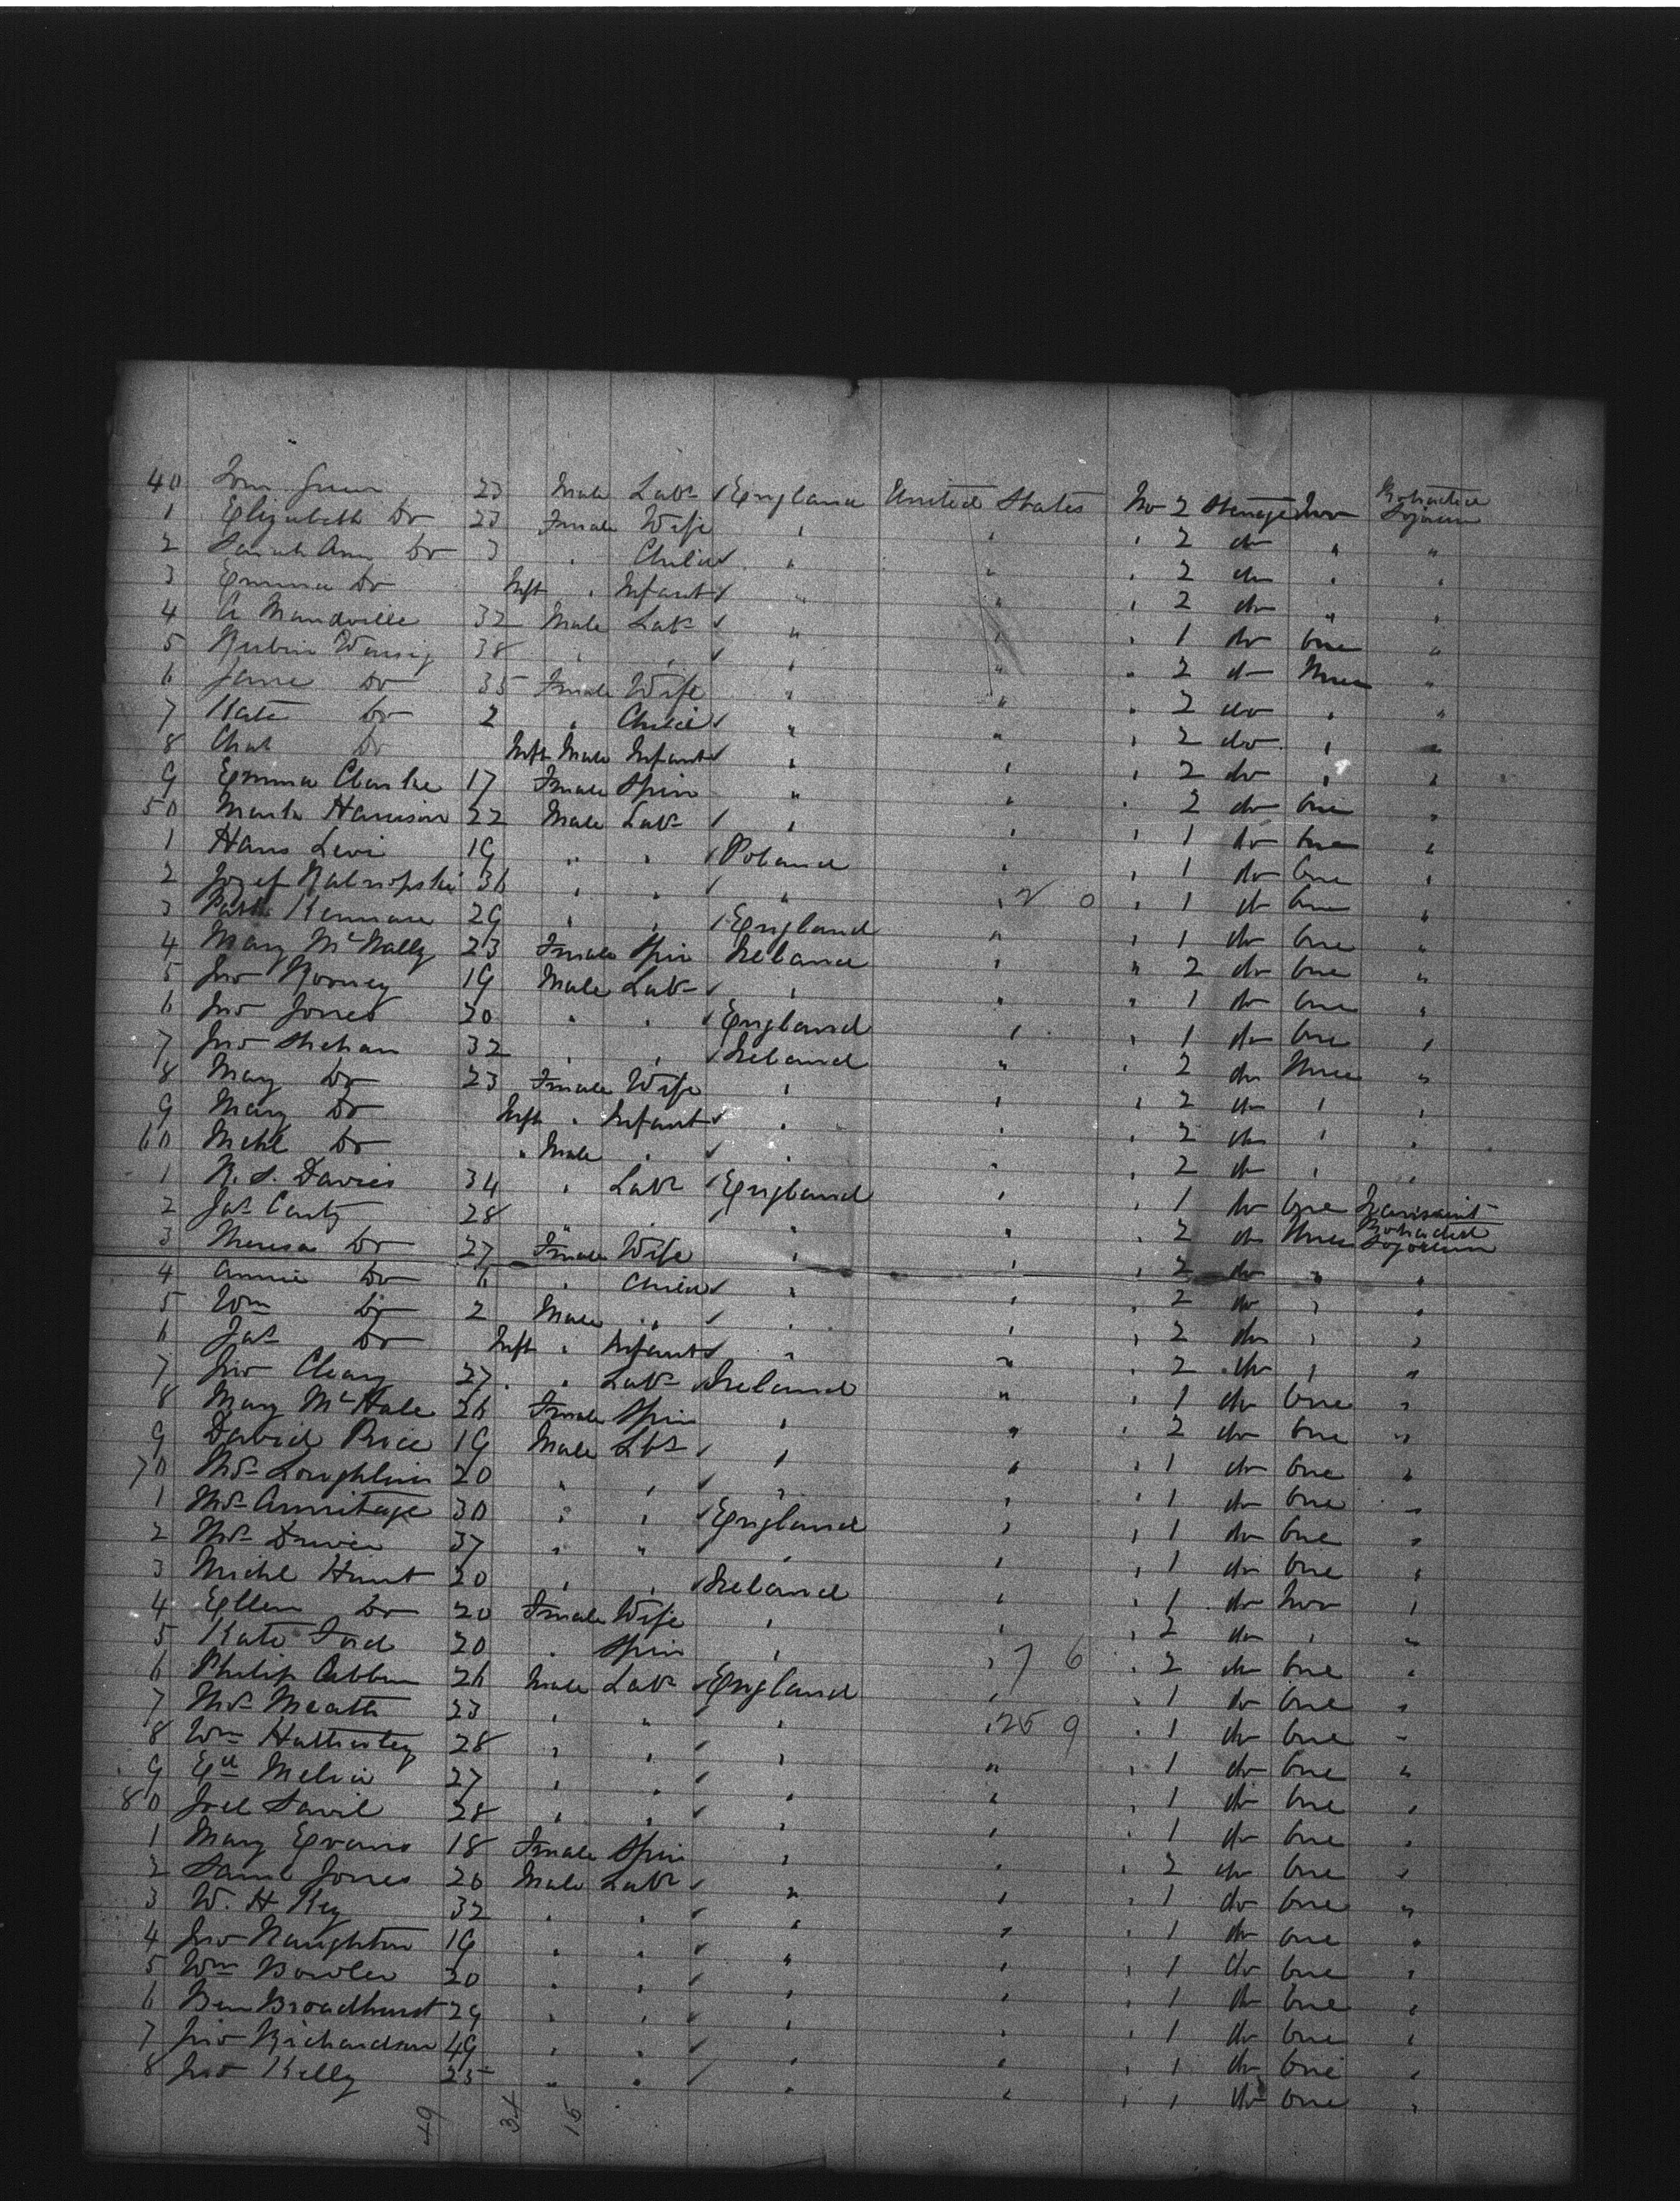 40 Green 23 Male Labr England United States No 2 Steerage Two Protracted Sojourn
1 Elizabeth Do 23 Female Wife " " " 2 do " "
2 Sarah Ann Do 3 " Child " " " 2 do " "
3 Emma Do Inft " Infant " " " 2 do " "
4 A Mandville 32 Male Labr " " " 1 do One "
5 Rubin 38 " " " " " 2 do Three "
6 Jane Do 35 Female Wife " " " 2 do " "
7 Kate Do 2 " Child " " " 2 do " "
8 Chas Do Inft Male Infant " " " 2 do " "
9 Emma Clarke 17 Female Spin " " " 2 do One "
50 Mark Harrison 22 Male Labr " " " 1 do One "
1 Hans Levi 19 " " Poland " " 1 do One "
2 Jozef 36 " " " " 2 0 " 1 do One "
3 Patk Kenmare 29 " " England " " 1 do One "
4 Mary McNally 23 Female Spin Ireland " " 2 do One "
5 Jno Rooney 19 Male Labr " " " 1 do One "
6 Jno Jones 20 " " England " " 1 do One "
7 Jno Shehan 32 " " Ireland " " 2 do Three "
8 Mary Do 23 Female Wife " " " 2 do " "
9 Mary Do Inft " Infant " " " 2 do " "
60 Michl Do " Male " " " " 2 do " "
1 R. S. Davies 34 " Labr England " " 1 do One Transient
2 Jas Canty 28 " " " " " 2 do Three Protracted Sojourn
3 Theresa Do 27 Female Wife " " " 2 do " "
4 Annie Do 6 " Child " " " 2 do " "
5 Wm Do 2 Male " " " " 2 do " "
6 Jas Do Inft " Infant " " " 2 do " "
7 Jno Cleary 27 " Labr Ireland " " 1 do One "
8 Mary McHale 26 Female Spin " " " 2 do One "
9 David Price 19 Male Labr " " " 1 do One "
70 Ths Loughlin 20 " " " " " 1 do One "
1 Ths Armitage 30 " " England " " 1 do One "
2 Ths 37 " " " " " 1 do One "
3 Michl Hunt 20 " " Ireland " " 1 do Two "
4 Ellen Do 20 Female Wife " " " 2 do " "
5 Kate Ford 20 " Spin " " 7 6 " 2 do One "
6 Philip 26 Male Labr England " " 1 do One "
7 Ths Meath 23 " " " " 25 9 " 1 do One "
8 Wm Hattersley 28 " " " " " 1 do One "
9 Ed Melvin 27 " " " " " 1 do One "
80 Joel Savil 28 " " " " " 1 do One "
1 Mary Evans 18 Female Spin " " " 2 do One "
2 Saml Jones 20 Male Labr " " " 1 do One "
3 W. H Key 32 " " " " " 1 do One "
4 Jno Naughton 19 " " " " " 1 do One "
5 Wm Bowler 20 " " " " " 1 do One "
6 Ben Broadhurst 29 " " " " " 1 do One "
7 Jno Richardson 49 " " " " " 1 do One "
8 Jno Kelly 25 " " " " " 1 do One "
49 34 15